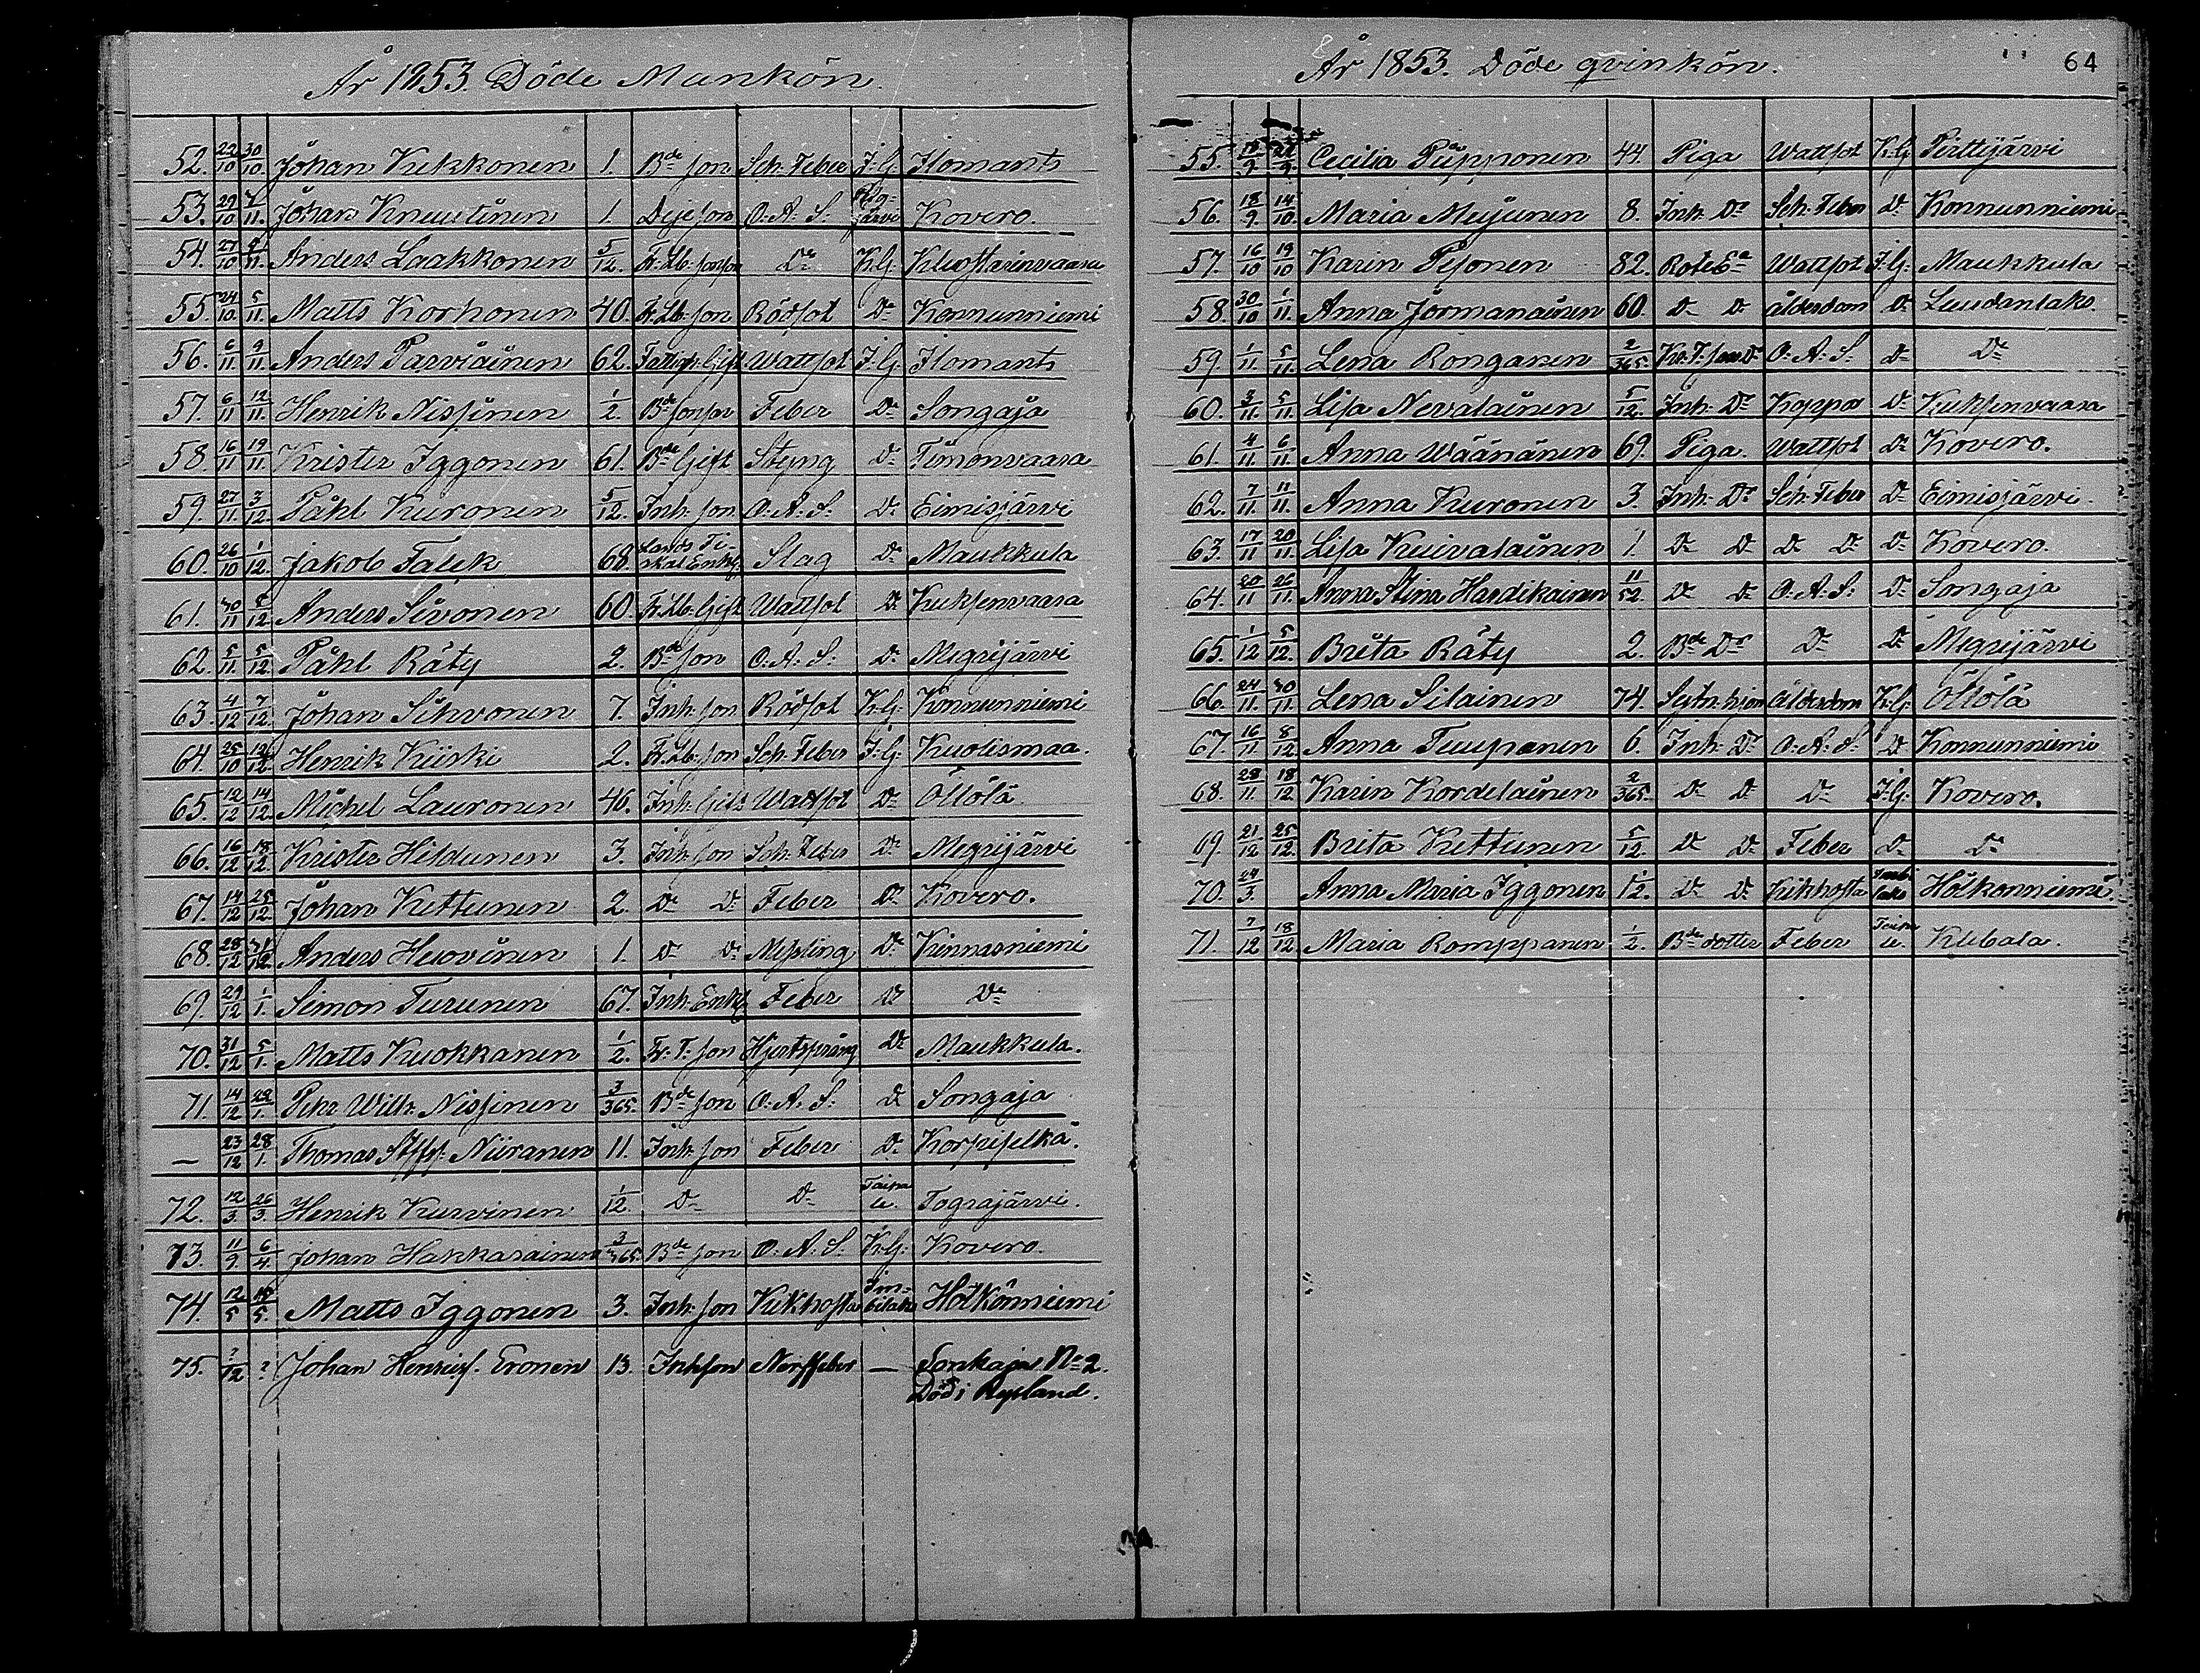 År 1853. Döde Mankön.
52. 22/10 30/10 Johan Kukkonen 1. Bde son Sch: Feber I: G: Ilomants
53. 29/10 7/11. Johan Knuutinen 1. Deje son O: A: S: järvi Kovero.
54. 27/10 /11. Anders Laakkonen 5/12. Kr. Lb. sonson Do K: G:
55 24/10 5/11. Matts Korhonen 40. Kr. Lb. son Rödsot Do Konnunniemi
56. 6/11 9/11. Anders Parviäinen 62. Fattigh: Gift Wattsot I: G: Ilomants
57. 6/11 12/11. Henrik Nissinen 1/2. Bde sonson Feber Do Songaja
58 16/11 19/11. Krister Iggonen 61. Bde Gift Styng Do Timonvaara
59. 27/11. 3/12. Påhl Kuronen 5/12. Inh: son O: A: S: Do Eimisjärvi
60. 26/10 1/12. Jakob Falck 68. Lands Fi-skal Enkl: Slag Do Maukkula
61. 30/11 /12 Anders Sivonen 60. Kr. Lb. Gift Wattsot Do Kuksenvaara
62. 5/11. 5/12. Påhl Räty 2. Bde son O: A: S: Do Megrijärvi
63. 4/12 7/12. Johan Sihvonen 7. Inh: son Rödsot K: G: Konnunniemi
64. 25/10 /12. Henrik Kiiski 2. Kr. Lb. son Sch: Feber I: G: Kuolismaa.
65. 12/12 14/12. Michel Lauronen 46. Inh: Gift Wattsot Do Öllölä
66. 16/12 18/12. Krister Hildunen 3. Inh: son Sch: Feber Do Megrijärvi
67. 14/12 25/12. Johan Kettunen 2. Do Do Feber Do Kovero.
68. 28/12 31/12 Anders Huovinen 1. Do Do Messling Do Kinnasniemi
69. 29/12 1/1. Simon Turunen 67. Inh: Enkl: Feber Do Do
70. 31/12 5/1. Matts Kuokkanen 1/2. Kr: T: son Hjertsprång Do Maukkula.
71. 14/12 28/1. Petr Wilh: Nissinen 3/365. Bde son O: A: S: Do Songaja
— 23/12 28/1. Thomas Niiranen 11. Inh: son Feber Do Korpiselkä.
72. 12/3. 26/3. Henrik Kurvinen 1/12. Do Do Taipale. Tograjärvi.
73. 11/9. 6/4. Johan Hakkarainen 3/365. Bde son O: A: S: K: G: Kovero.
74. 12/5 15/5. Matts Iggonen 3. Inh: son Kikhosta Imbilaks Hötkönniemi
75. ?/12 ? Johan Henriss. Eronen 13. Inhson Nerffeber — Sonkaja No 2.
Död i Ryssland.
År 1853. Döde qvinkön.
64
55. 15/9. /9. Cecilia Piipponen 44. Piga Wattsot K: G Perttijärvi
56. 18/9. 14/10 Maria Meijunen 8. Inh: Dr Sch: Feber Do Konnunniemi
57. 16/10 19/10 Karin Pesonen 82. Rote Ea Wattsot I: G: Maukkula
58. 30/10 1/11. Anna Jormanainen 60. Do Do ålderdom Do Luudanlaks.
59. 1/11. 5/11. Lena Ronganen 2/365. Kr: T: sons Dr O: A: S: Do Do
60. 3/11. 5/11. Lisa Nevalainen 5/12. Inh: Dr Koppor Do Kuksenvaara
61. 4/11. 6/11. Anna Wäänänen 69. Piga Wattsot Do Kovero.
62. 7/11. 11/11. Anna Kuronen 3. Inh: Dr Sch: Feber Do Eimisjärvi.
63. 17/11 20/11. Lisa Kuivalainen 1. Do Do Do Do Do Kovero.
64. 20/11 26/11. Anna Stina Hardikainen 11/52. Do Do O: A: S: Do Songaja
65. 1/12 5/12. Brita Räty 2. Bde Dr Do Do Megrijärvi
66. 24/11. 30/11. Lena Silainen 74. Sytn: hjon ålderdom K: G Öllölä
67. 16/11. 8/12 Anna Tuupanen 6. Inh: Dr O: A: S: Do Konnunniemi
68. 28/11. 18/12 Karin Kordelainen 2/365. Do Do Do I: G: Kovero.
69. 21/12 25/12. Brita Kettunen 5/12. Do Do Feber Do Do
70. 24/3. Anna Maria Iggonen 1/12. Do Do Kikhosta Imbilaks Hötkönniemi.
71. 7/12 18/12. Maria Romppanen 1/2. Bde dotter Feber Taipale. Klebala.